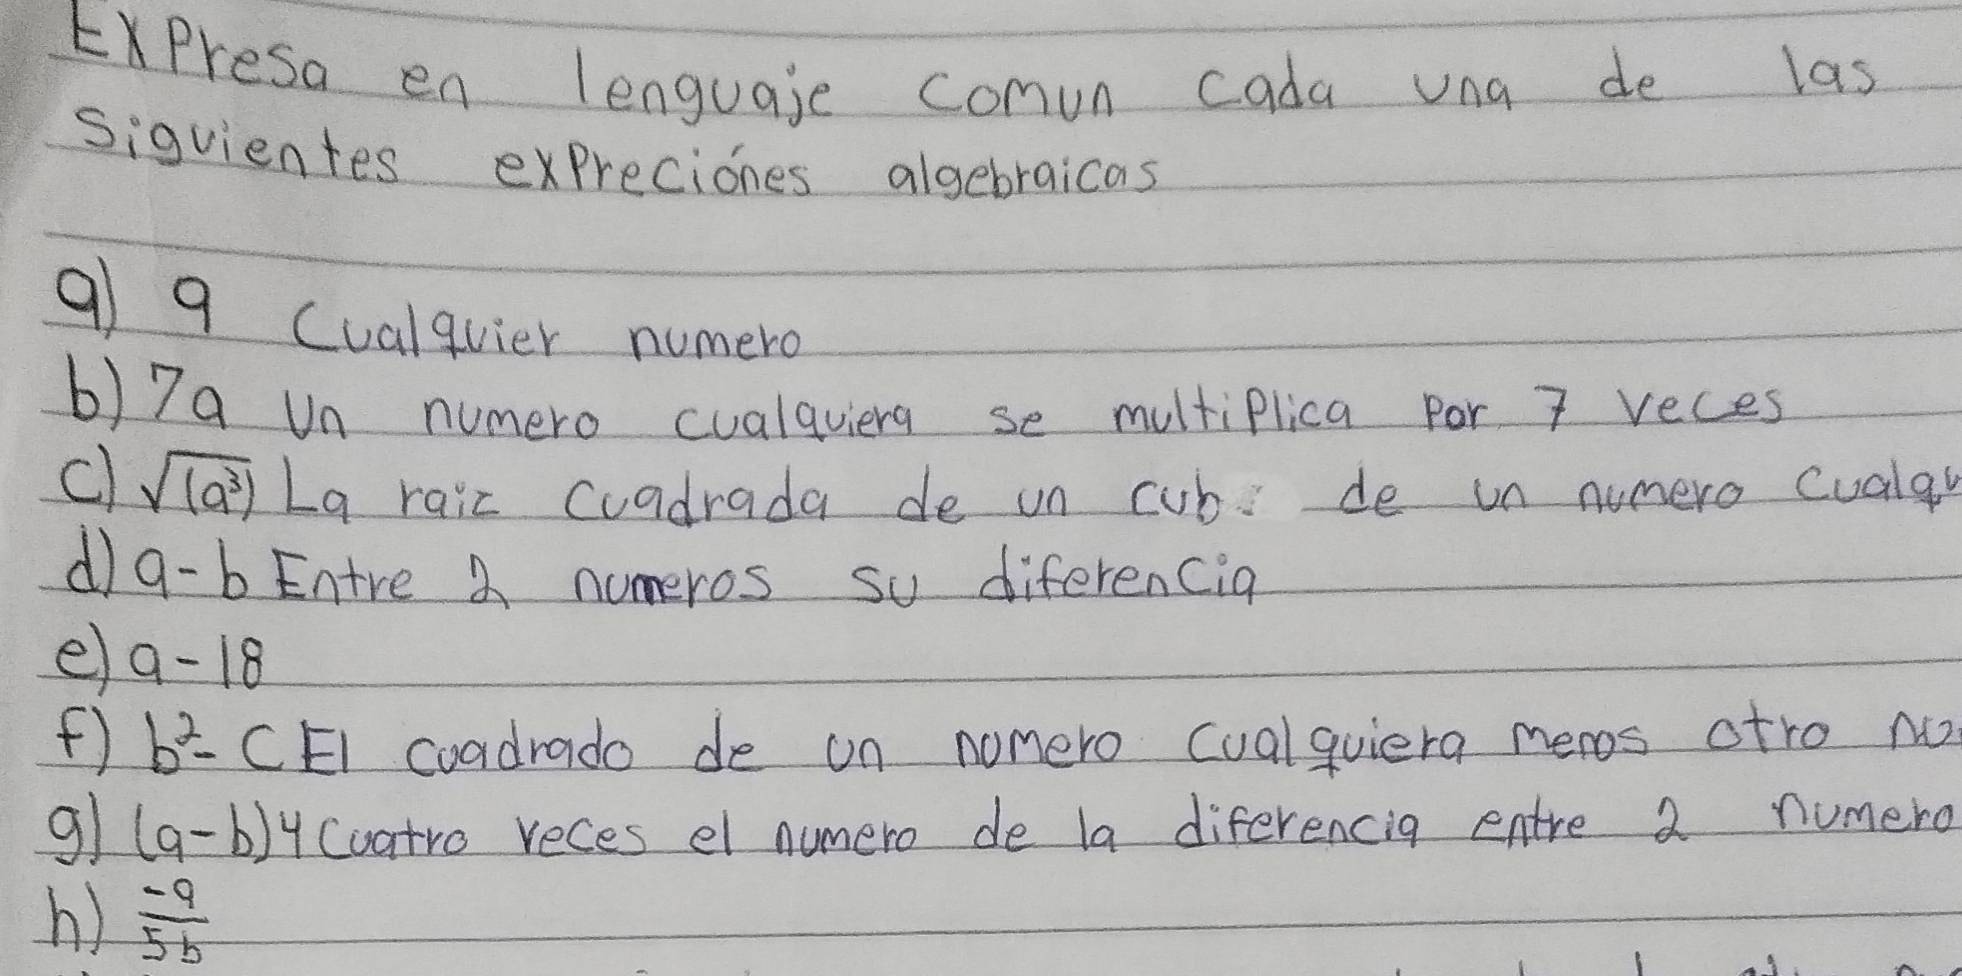 Expresa en lenguaje comun cada una de las
siguientes expreciónes algebraicas
a) a Cualquier numero
b) 7a Un numero cualquiera se multiplica por 7 veces
c) √(a³) La raiz cuadrada de un cubo de un numero cualqu
d) a-b Entre 2 numeros su diferencia
e) a-18
f) b²-c El cuadrado de un numero cualquiera menos otro nu
g) (a-b)4 Cuatro veces el numero de la diferencia entre 2 numero
h) -a/5b